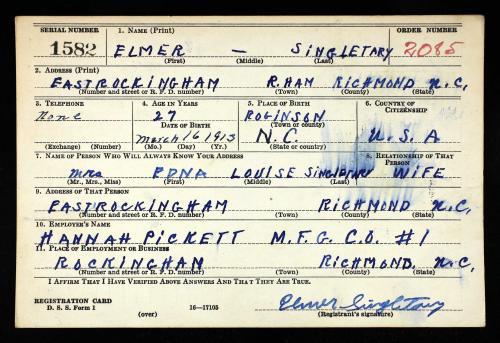 SERIAL NUMBER 1. NAME (Print) ORDER NUMBER
1582 ELMER — SINGLETARY 2085
(First) (Middle) (Last)
2. ADDRESS (Print)
EAST ROCKINGHAM R.HAM RICHMOND N.C.
(Number and street or R. F. D. number) (Town) (County) (State)
3. TELEPHONE 4. AGE IN YEARS 5. PLACE OF BIRTH 6. COUNTRY OF CITIZENSHIP
None 27 ROBINSON
DATE OF BIRTH (Town or county)
March 16 1913 N.C. U.S.A
(Exchange) (Number) (Mo.) (Day) (Yr.) (State or country)
7. NAME OF PERSON WHO WILL ALWAYS KNOW YOUR ADDRESS 8. RELATIONSHIP OF THAT PERSON
mrs EDNA LOUISE SINGLETARY WIFE
(Mr., Mrs., Miss) (First) (Middle) (Last)
9. ADDRESS OF THAT PERSON
EAST ROCKINGHAM RICHMOND N.C.
(Number and street or R. F. D. number) (Town) (County) (State)
10. EMPLOYER'S NAME
HANNAH PICKETT M.F.G. C.O. #1
11. PLACE OF EMPLOYMENT OR BUSINESS
ROCKINGHAM RICHMOND N.C.
(Number and street or R. F. D. number) (Town) (County) (State)
I AFFIRM THAT I HAVE VERIFIED ABOVE ANSWERS AND THAT THEY ARE TRUE.
REGISTRATION CARD Elmer Singletary
D. S. S. Form 1 (over) 16—17105 (Registrant's signature)